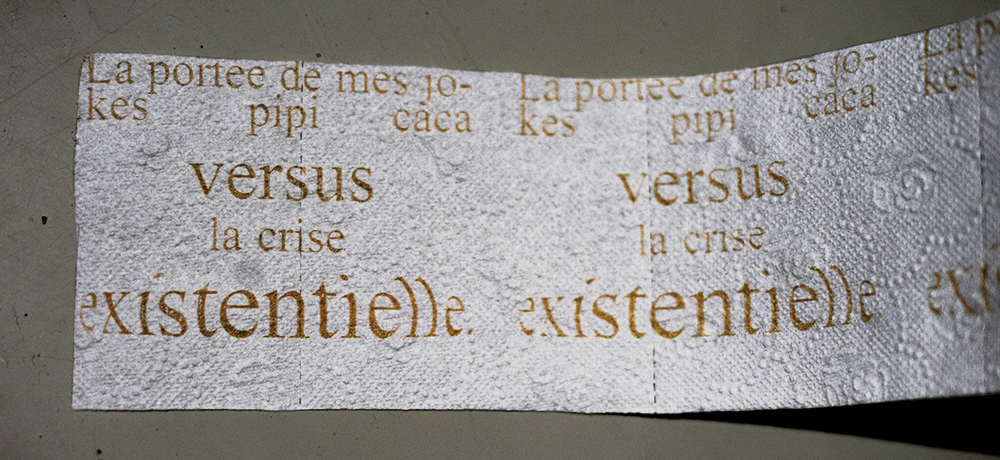 La portée de mes jo-
kes pipi caca
versus
la crise
existentie)))e.
La portée de mes jo-
kes pipi caca
versus
la crise
existentie)))e
La p
kes
exi